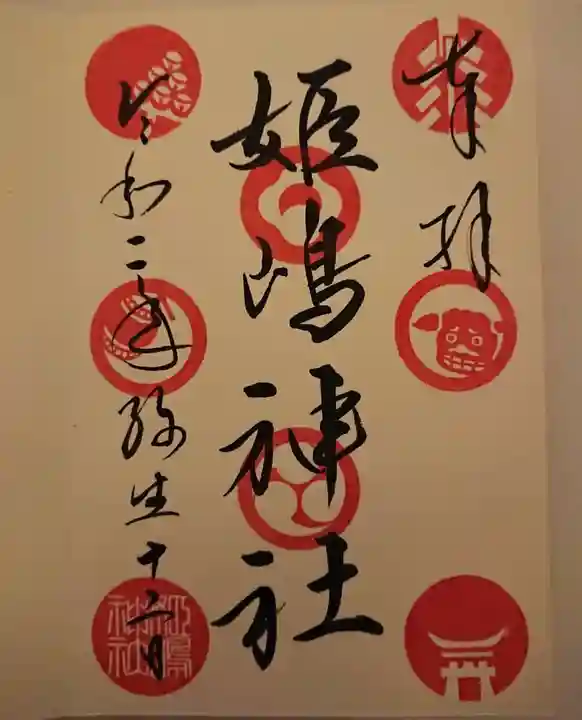 奉拝
姫嶋神社
令和二年弥生十二日
姫嶋神社